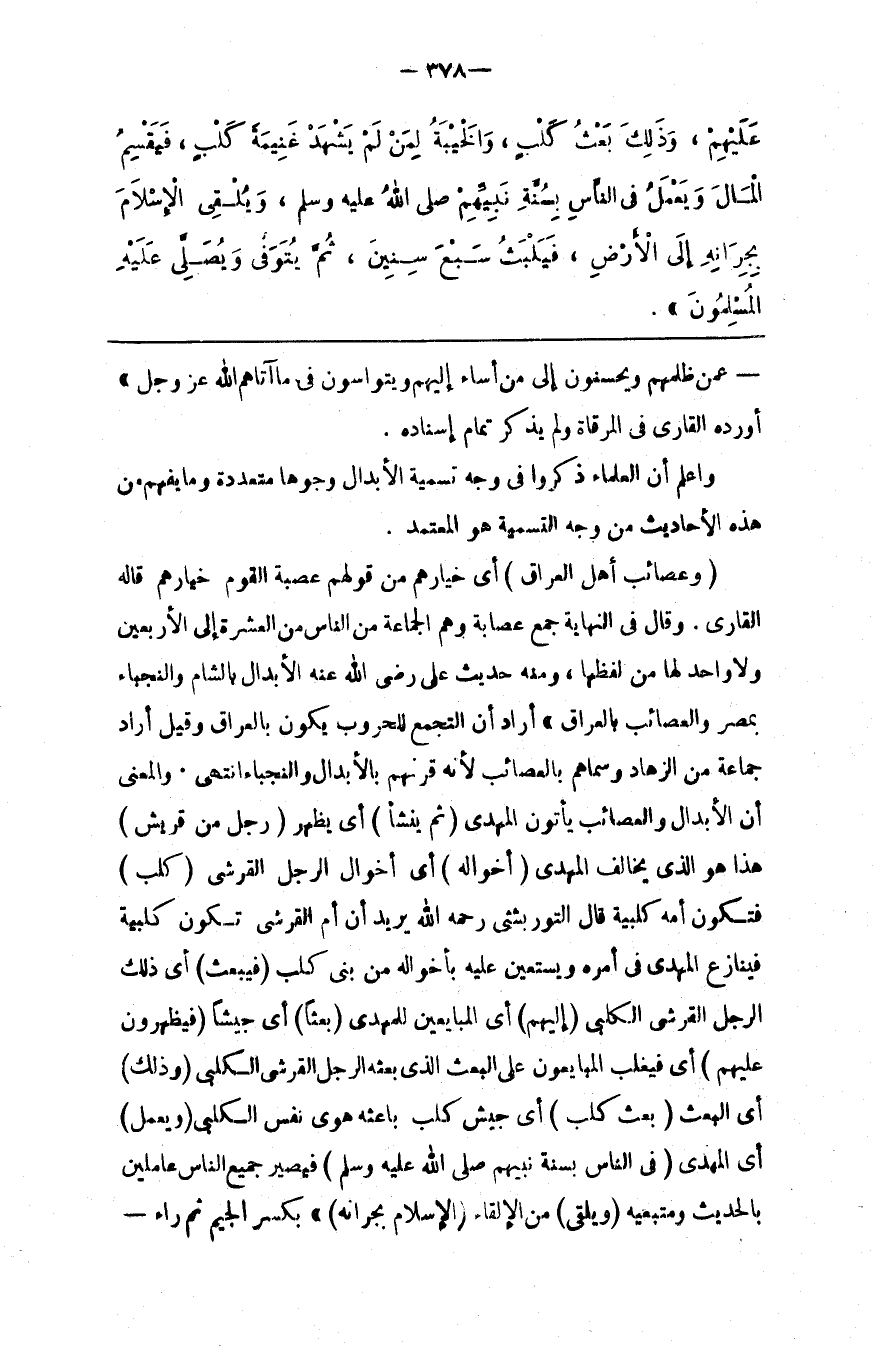 — ٣٧٨ —
عَلَيْهِمْ ، وَذَلِكَ بَعْثُ كَلْبٍ ، وَالْخَيْبَةُ لِمَنْ لَمْ يَشْهَدْ غَنِيمَةَ كَلْبٍ ، فَيَقْسِمُ
الْمَالَ وَيَعْمَلُ فى النَّاسِ بِسُنَّةِ نَبِيِّهِمْ صلى اللهُ عليه وسلم ، وَيُلْقِى الْإِسْلَامَ
بِجِرَانِهِ إِلَى الْأَرْضِ ، فَيَلْبَثُ سَبْعَ سِنِينَ ، ثُمَّ يُتَوَفَّى وَيُصَلِّى عَلَيْهِ
الْمُسْلِمُونَ » .
— عمن ظلمهم ويحسنون إلى من أساء إليهم ويتواسون فى ما آتاهم الله عز وجل »
أورده القارى فى المرقاة ولم يذكر تمام إسناده .
واعلم أن العلماء ذكروا فى وجه تسمية الأبدال وجوها متعددة وما يفهم من
هذه الأحاديث من وجه التسمية هو المعتمد .
( وعصائب أهل العراق ) أى خيارهم من قولهم عصبة القوم خيارهم قاله
القارى . وقال فى النهاية جمع عصابة وهم الجماعة من الناس من العشرة إلى الأربعين
ولا واحد لها من لفظها ، ومنه حديث على رضى الله عنه الأبدال بالشام والنجباء
بمصر والعصائب بالعراق » أراد أن التجمع للحروب يكون بالعراق وقيل أراد
جماعة من الزهاد وسماهم بالعصائب لأنه قرنهم بالأبدال والنجباء انتهى . والمعنى
أن الأبدال والعصائب يأتون المهدى ( ثم ينشأ ) أى يظهر ( رجل من قريش )
هذا هو الذى يخالف المهدى ( أخواله ) أى أخوال الرجل القرشى ( كلب )
فتكون أمه كلبية قال التوربشتى رحمه الله يريد أن أم القرشى تكون كلبية
فينازع المهدى فى أمره ويستعين عليه بأخواله من بنى كلب (فيبعث) أى ذلك
الرجل القرشى الكلبى (إليهم) أى المبايعين للمهدى (بعثاً) أى جيشاً (فيظهرون
عليهم ) أى فيغلب المبايعون على البعث الذى بعثه الرجل القرشى الكلبى (وذلك)
أى البعث ( بعث كلب ) أى جيش كلب باعثه هوى نفس الكلبى (ويعمل)
أى المهدى ( فى الناس بسنة نبيهم صلى الله عليه وسلم ) فيصير جميع الناس عاملين
بالحديث ومتبعيه (ويلقى) من الإلقاء (الإسلام بجرانه) » بكسر الجيم ثم راء —